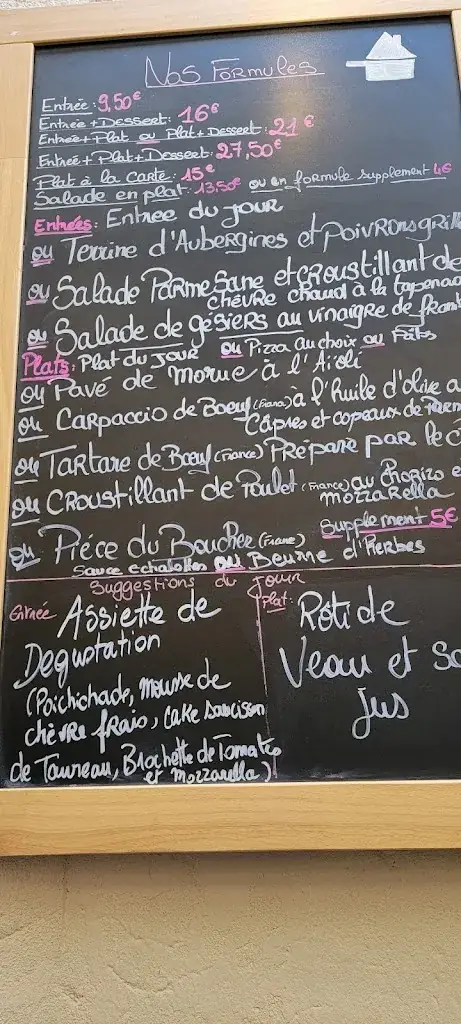 Nos Formules
Entrée: 9,50€
Entrée + Dessert: 16€
Entrée + Plat ou Plat + Dessert: 21€
Entrée + Plat + Dessert: 27,50€
Plat à la carte: 15€
Salade en plat: 13.50€ ou en formule supplement 4€
Entrées: Entrée du jour
ou Terrine d'Aubergines et poivrons
ou Salade Parmesane et croustillant de
chèvre chaud à la
ou Salade de gésiers au vinaigre de
Plats: Plat du Jour ou Pizza au choix ou Pâts
ou Pavé de Morue à l'Aïoli
ou Carpaccio de Boeuf (France) à l'Huile d'olive
Câpres et copeaux de
ou Tartare de Boeuf (France) Préparé par le
ou Croustillant de Poulet (France) au Chorizo
Mozzarella
ou Piéce du Boucher (France) Supplement 5€
Sauce echalottes ou Beurre d'Herbes
Suggestions du Jour
Entrée Assiette de
Degustation
(Poichichade, Mousse de
chèvre frais, Cake saucisson
de Taureau, Brochette de Tomates
et Mozzarella)
Plat: Rôti de
Veau et
jus